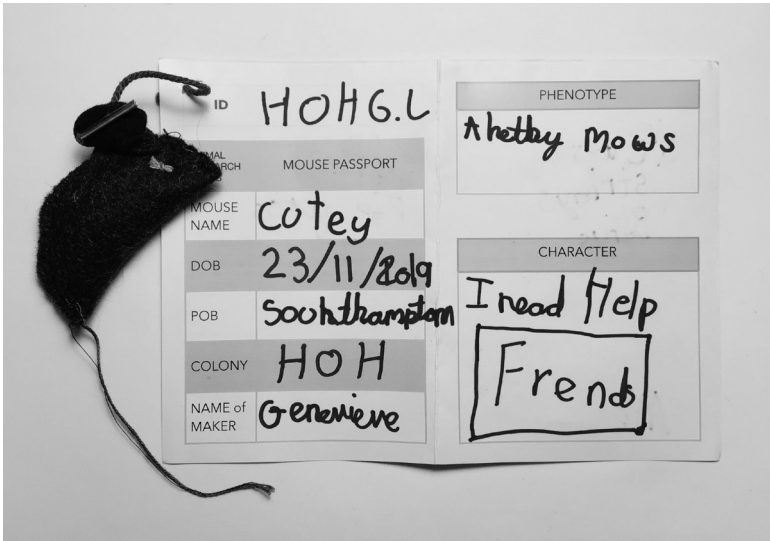 ID HOHG.L
MOUSE PASSPORT
MOUSE NAME Cutey
DOB 23/11/2019
POB Southhampton
COLONY HOH
NAME of MAKER Genevieve
PHENOTYPE
Ahettby Mows
CHARACTER
I nead Help
Frends